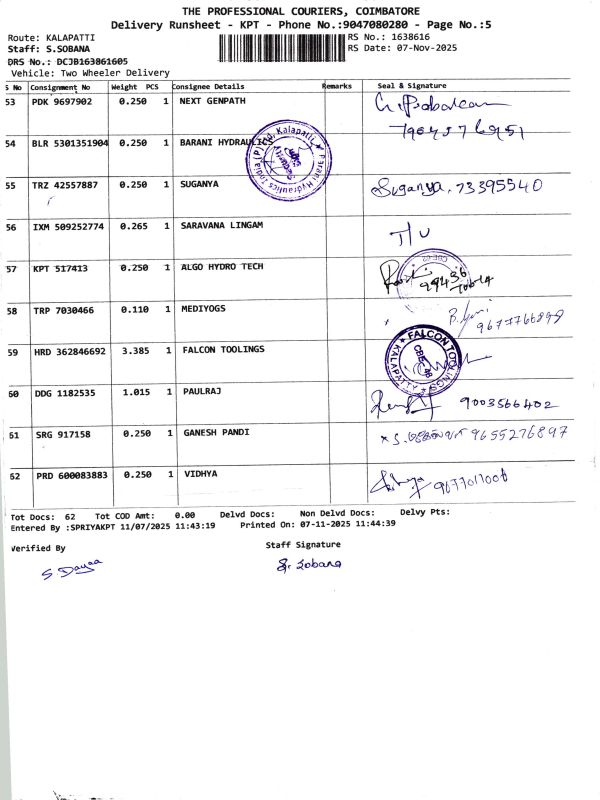 THE PROFESSIONAL COURIERS, COIMBATORE
Delivery Runsheet - KPT - Phone No.:9047080280 - Page No.:5
Route: KALAPATTI RS No.: 1638616
Staff: S.SOBANA RS Date: 07-Nov-2025
DRS No.: DCJB163861605
Vehicle: Two Wheeler Delivery
S No Consignment No Weight PCS Consignee Details Remarks Seal & Signature
53 PDK 9697902 0.250 1 NEXT GENPATH
54 BLR 5301351904 0.250 1 BARANI HYDRAULICS
55 TRZ 42557887 0.250 1 SUGANYA Suganya. 73395540
56 IXM 509252774 0.265 1 SARAVANA LINGAM T/U
57 KPT 517413 0.250 1 ALGO HYDRO TECH
58 TRP 7030466 0.110 1 MEDIYOGS
59 HRD 362846692 3.385 1 FALCON TOOLINGS FALCON TOOLINGS KALAPATTY
60 DDG 1182535 1.015 1 PAULRAJ 9003566402
61 SRG 917158 0.250 1 GANESH PANDI 9655276897
62 PRD 600083883 0.250 1 VIDHYA
Tot Docs: 62 Tot COD Amt: 0.00 Delvd Docs: Non Delvd Docs: Delvy Pts:
Entered By :SPRIYAKPT 11/07/2025 11:43:19 Printed On: 07-11-2025 11:44:39
Verified By Staff Signature
S. Dayaa S. Sobana